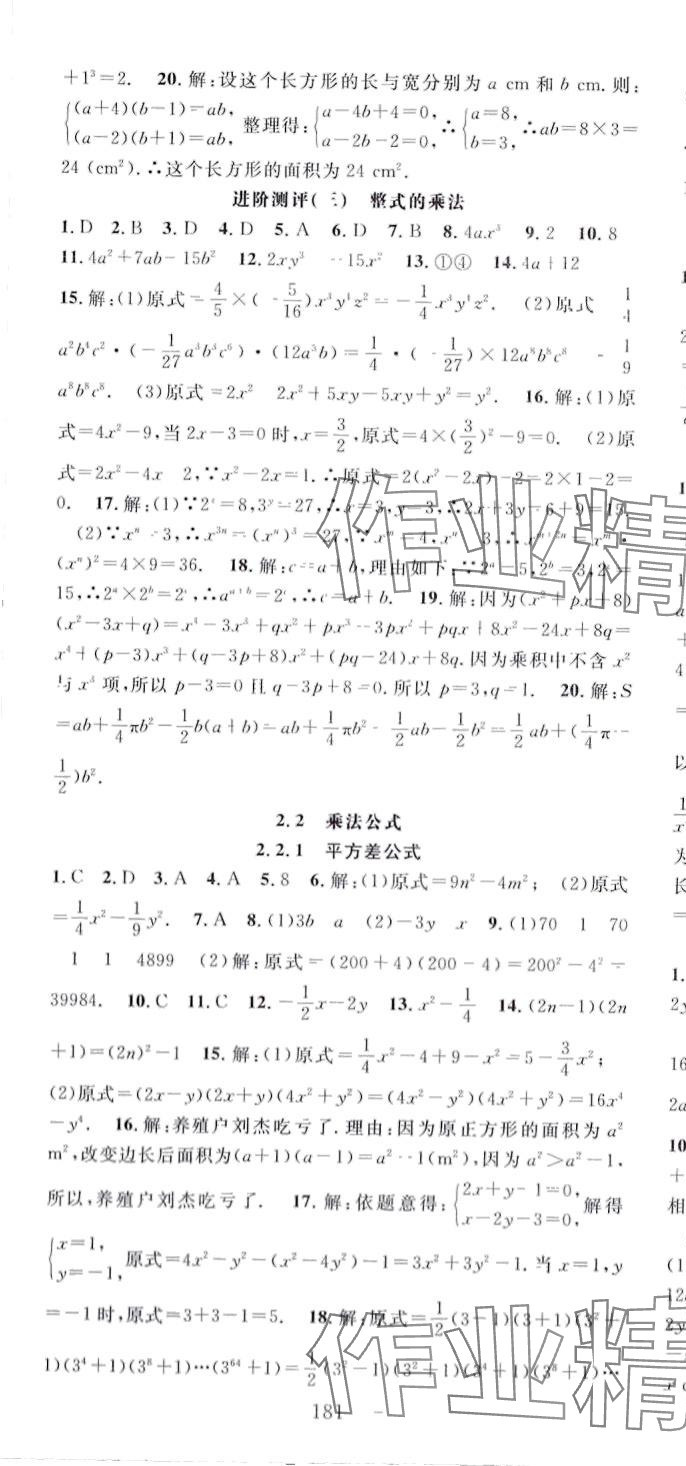 +1³=2.  20. 解:设这个长方形的长与宽分别为 a cm 和 b cm. 则:
{(a+4)(b-1)=ab, (a-2)(b+1)=ab, 整理得: {a-4b+4=0, a-2b-2=0, ∴ {a=8, b=3, ∴ab=8×3=
24 (cm²). ∴这个长方形的面积为 24 cm².
进阶测评(三) 整式的乘法
1. D  2. B  3. D  4. D  5. A  6. D  7. B  8. 4ax³  9. 2  10. 8
11. 4a²+7ab-15b²  12. 2xy³  -15x²  13. ①④  14. 4a+12
15. 解:(1)原式=4/5×(-5/16)x³y⁴z²=-1/4x³y⁴z².  (2)原式 1/4
a²b⁴c²·(-1/27a³b³c⁶)·(12a³b)=1/4·(-1/27)×12a⁸b⁸c⁸ -1/9
a⁸b⁸c⁸.  (3)原式=2x² 2x²+5xy-5xy+y²=y².  16. 解:(1)原
式=4x²-9,当 2x-3=0 时,x=3/2,原式=4×(3/2)²-9=0.  (2)原
式=2x²-4x 2,∵x²-2x=1. ∴原式=2(x²-2x)-2=2×1-2=
0.  17. 解:(1)∵2ˣ=8,3ʸ=27,∴x=3,y=3,∴2x+3y=6+9=15.
(2)∵xⁿ=3,∴x³ⁿ=(xⁿ)³=27,∵xᵐ=4,xⁿ=3,∴xᵐ⁺²ⁿ=xᵐ·
(xⁿ)²=4×9=36.  18. 解:c=a+b,理由如下:∵2ᵃ=5,2ᵇ=3,2ᶜ=
15,∴2ᵃ×2ᵇ=2ᶜ,∴2ᵃ⁺ᵇ=2ᶜ,∴c=a+b.  19. 解:因为(x²+px+8)
(x²-3x+q)=x⁴-3x³+qx²+px³-3px²+pqx+8x²-24x+8q=
x⁴+(p-3)x³+(q-3p+8)x²+(pq-24)x+8q. 因为乘积中不含 x²
与 x³ 项,所以 p-3=0 且 q-3p+8=0. 所以 p=3,q=1.  20. 解:S
=ab+1/4πb²-1/2b(a+b)=ab+1/4πb²-1/2ab-1/2b²=1/2ab+(1/4π-
1/2)b².
2.2 乘法公式
2.2.1 平方差公式
1. C  2. D  3. A  4. A  5. 8  6. 解:(1)原式=9n²-4m²; (2)原式
=1/4x²-1/9y².  7. A  8. (1)3b  a  (2)-3y  x  9. (1)70  1  70
1  1  4899  (2)解:原式=(200+4)(200-4)=200²-4²=
39984.  10. C  11. C  12. -1/2x-2y  13. x²-1/4  14. (2n-1)(2n
+1)=(2n)²-1  15. 解:(1)原式=1/4x²-4+9-x²=5-3/4x²;
(2)原式=(2x-y)(2x+y)(4x²+y²)=(4x²-y²)(4x²+y²)=16x⁴
-y⁴.  16. 解:养殖户刘杰吃亏了. 理由:因为原正方形的面积为 a²
m²,改变边长后面积为(a+1)(a-1)=a²-1(m²),因为 a²>a²-1.
所以,养殖户刘杰吃亏了.  17. 解:依题意得: {2x+y-1=0, x-2y-3=0, 解得
{x=1, y=-1, 原式=4x²-y²-(x²-4y²)-1=3x²+3y²-1. 当 x=1,y
=-1 时,原式=3+3-1=5.  18. 解:原式=1/2(3-1)(3+1)(3²+
1)(3⁴+1)(3⁸+1)…(3⁶⁴+1)=1/2(3²-1)(3²+1)(3⁴+1)(3⁸+1)…
181
作业精
作业精